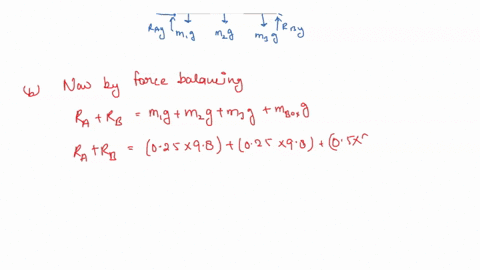 RAy m1g m2g m3g RBy
(b) Now by force balancing
RA + RB = m1g + m2g + m3g + mBoxg
RA + RB = (0.25×9.8) + (0.25×9.8) + (0.5×